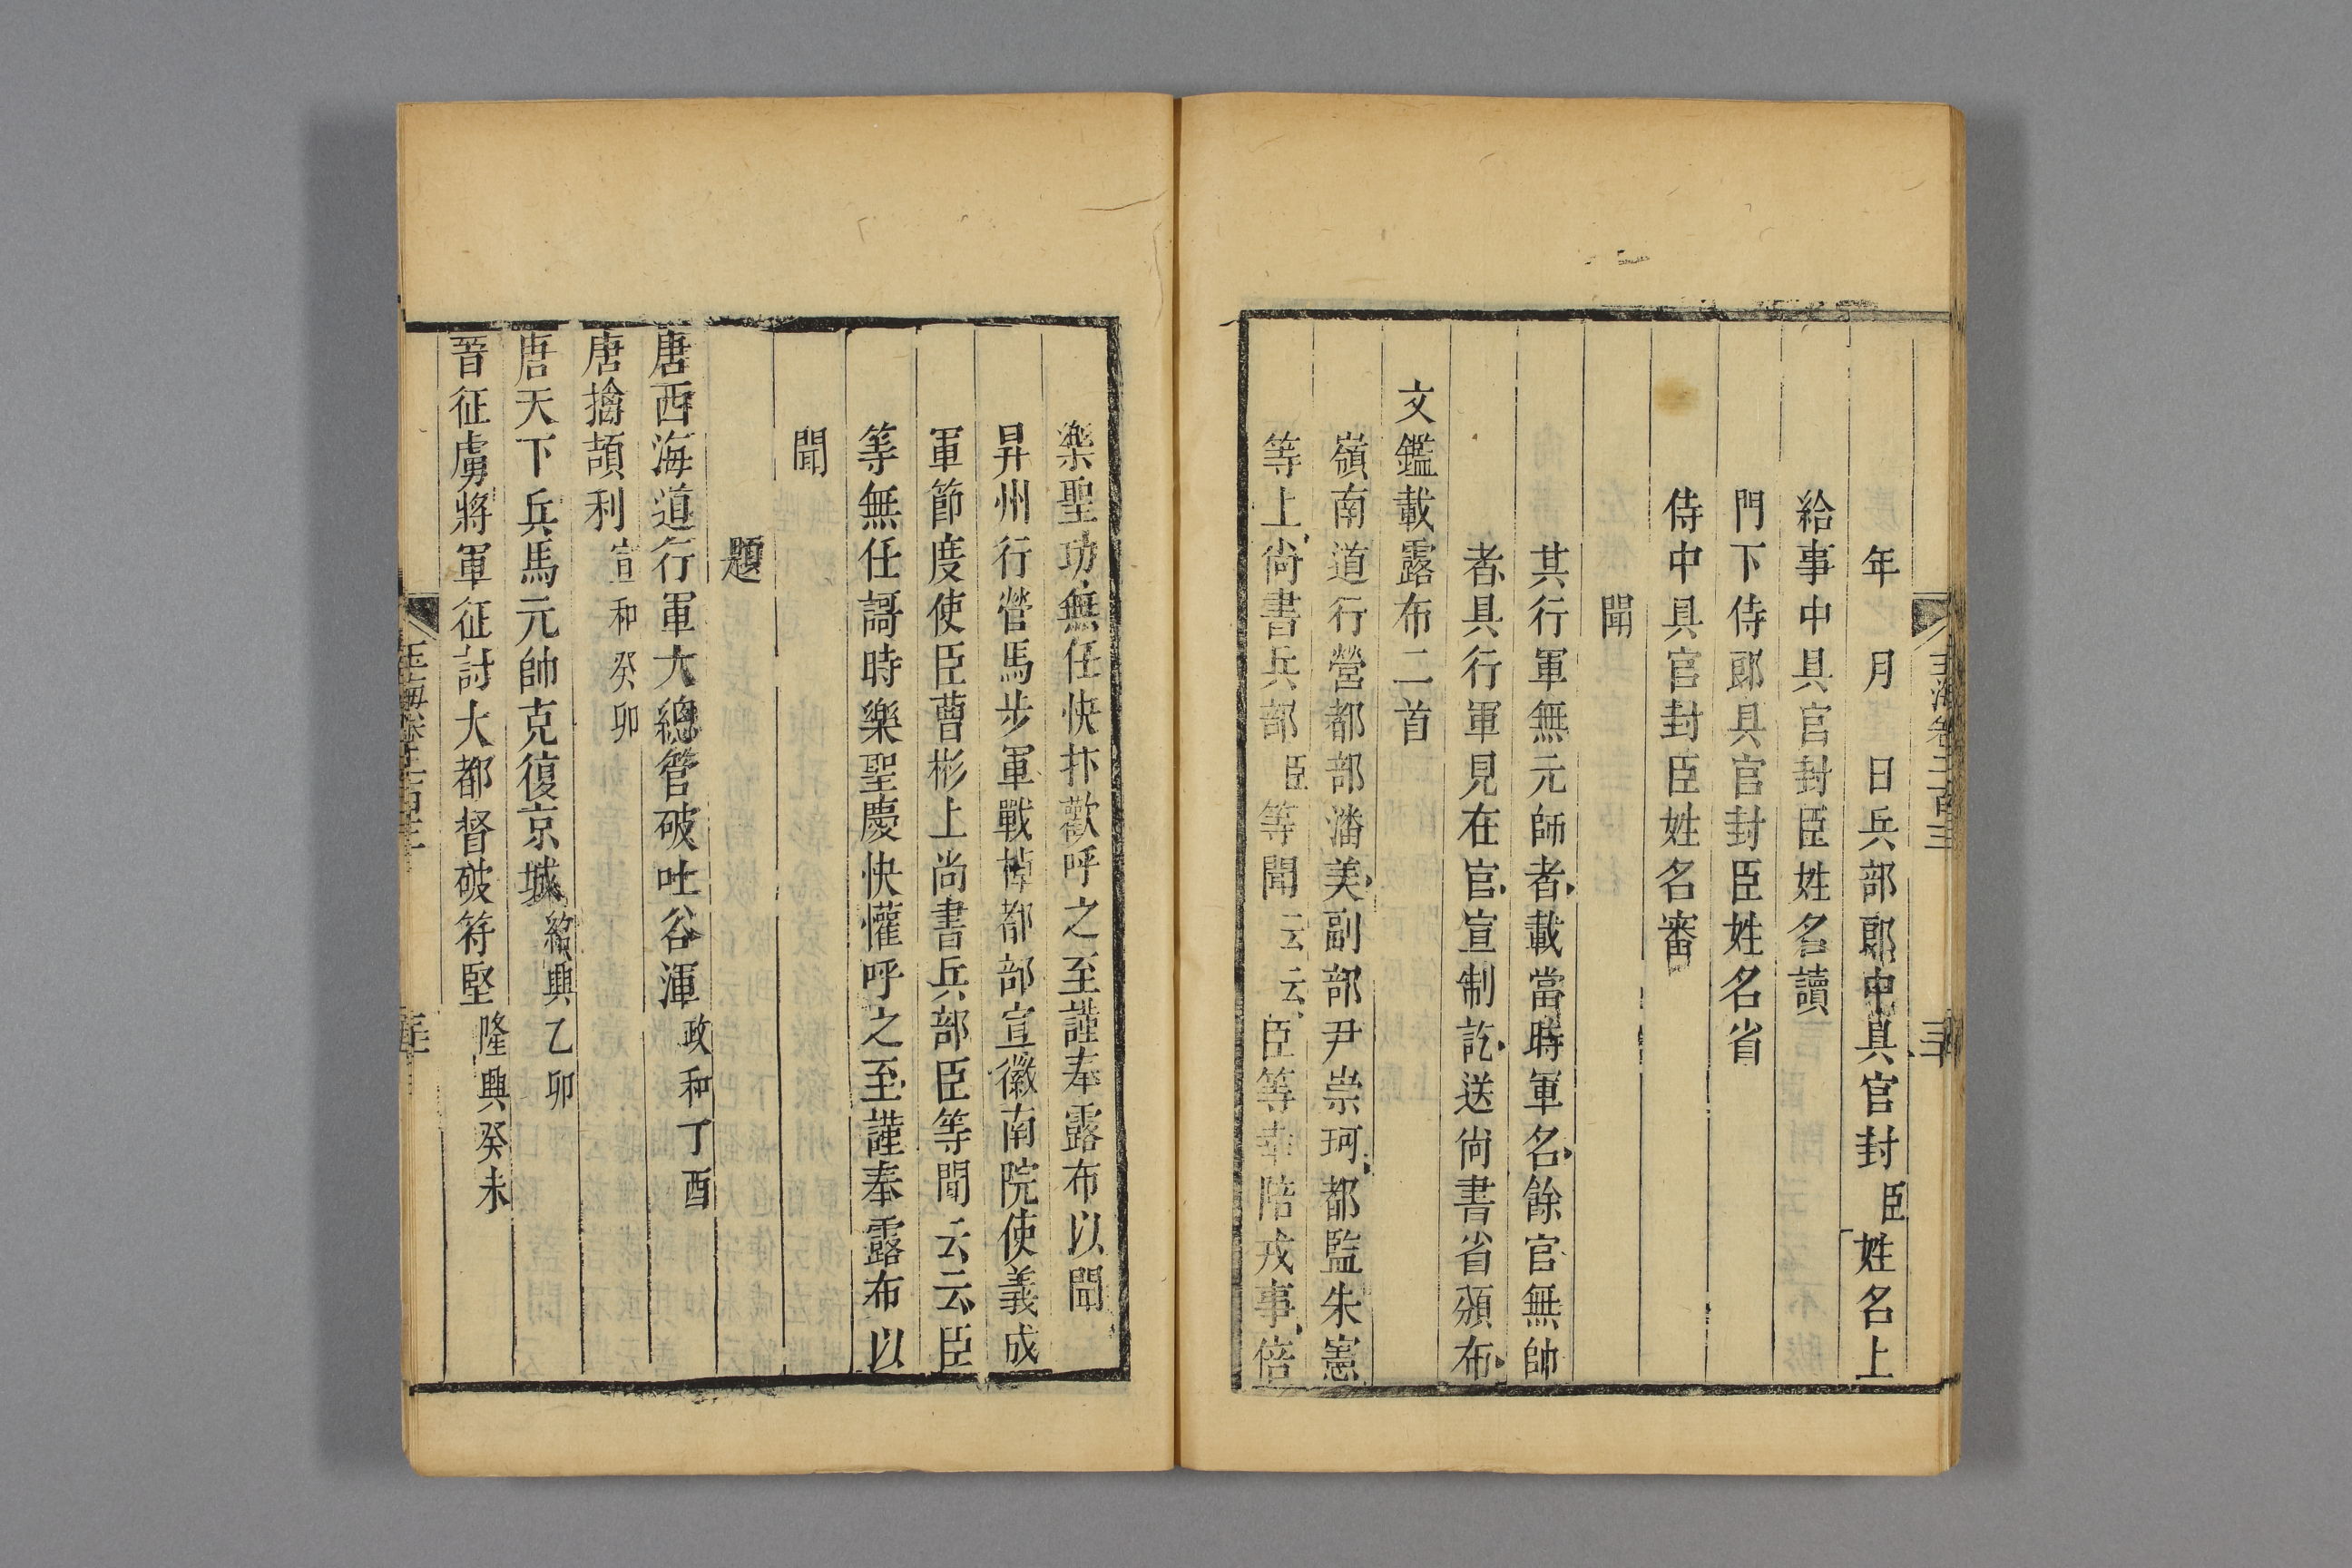 年月日兵部郎中具官封臣姓名上
給事中具官封臣姓名讀
門下侍郎具官封臣姓名省
侍中具官封臣姓名審
聞
其行軍無元帥者載當時軍名餘官無帥
者具行軍見在官宣制訖送尚書省頒布
文鑑載露布二首
嶺南道行營都部潘美副部尹崇珂都監朱憲
等上尚書兵部臣等聞云云臣等幸陪戎事倍
樂聖功無任快抃歡呼之至謹奉露布以聞
昇州行營馬步軍戰棹都部宣徽南院使義成
軍節度使臣曹彬上尚書兵部臣等聞云云臣
等無任謌時樂聖慶快懽呼之至謹奉露布以
聞
題
唐西海道行軍大總管破吐谷渾政和丁酉
唐擒頡利宣和癸卯
唐天下兵馬元帥克復京城紹興乙卯
晉征虜將軍征討大都督破苻堅隆興癸未